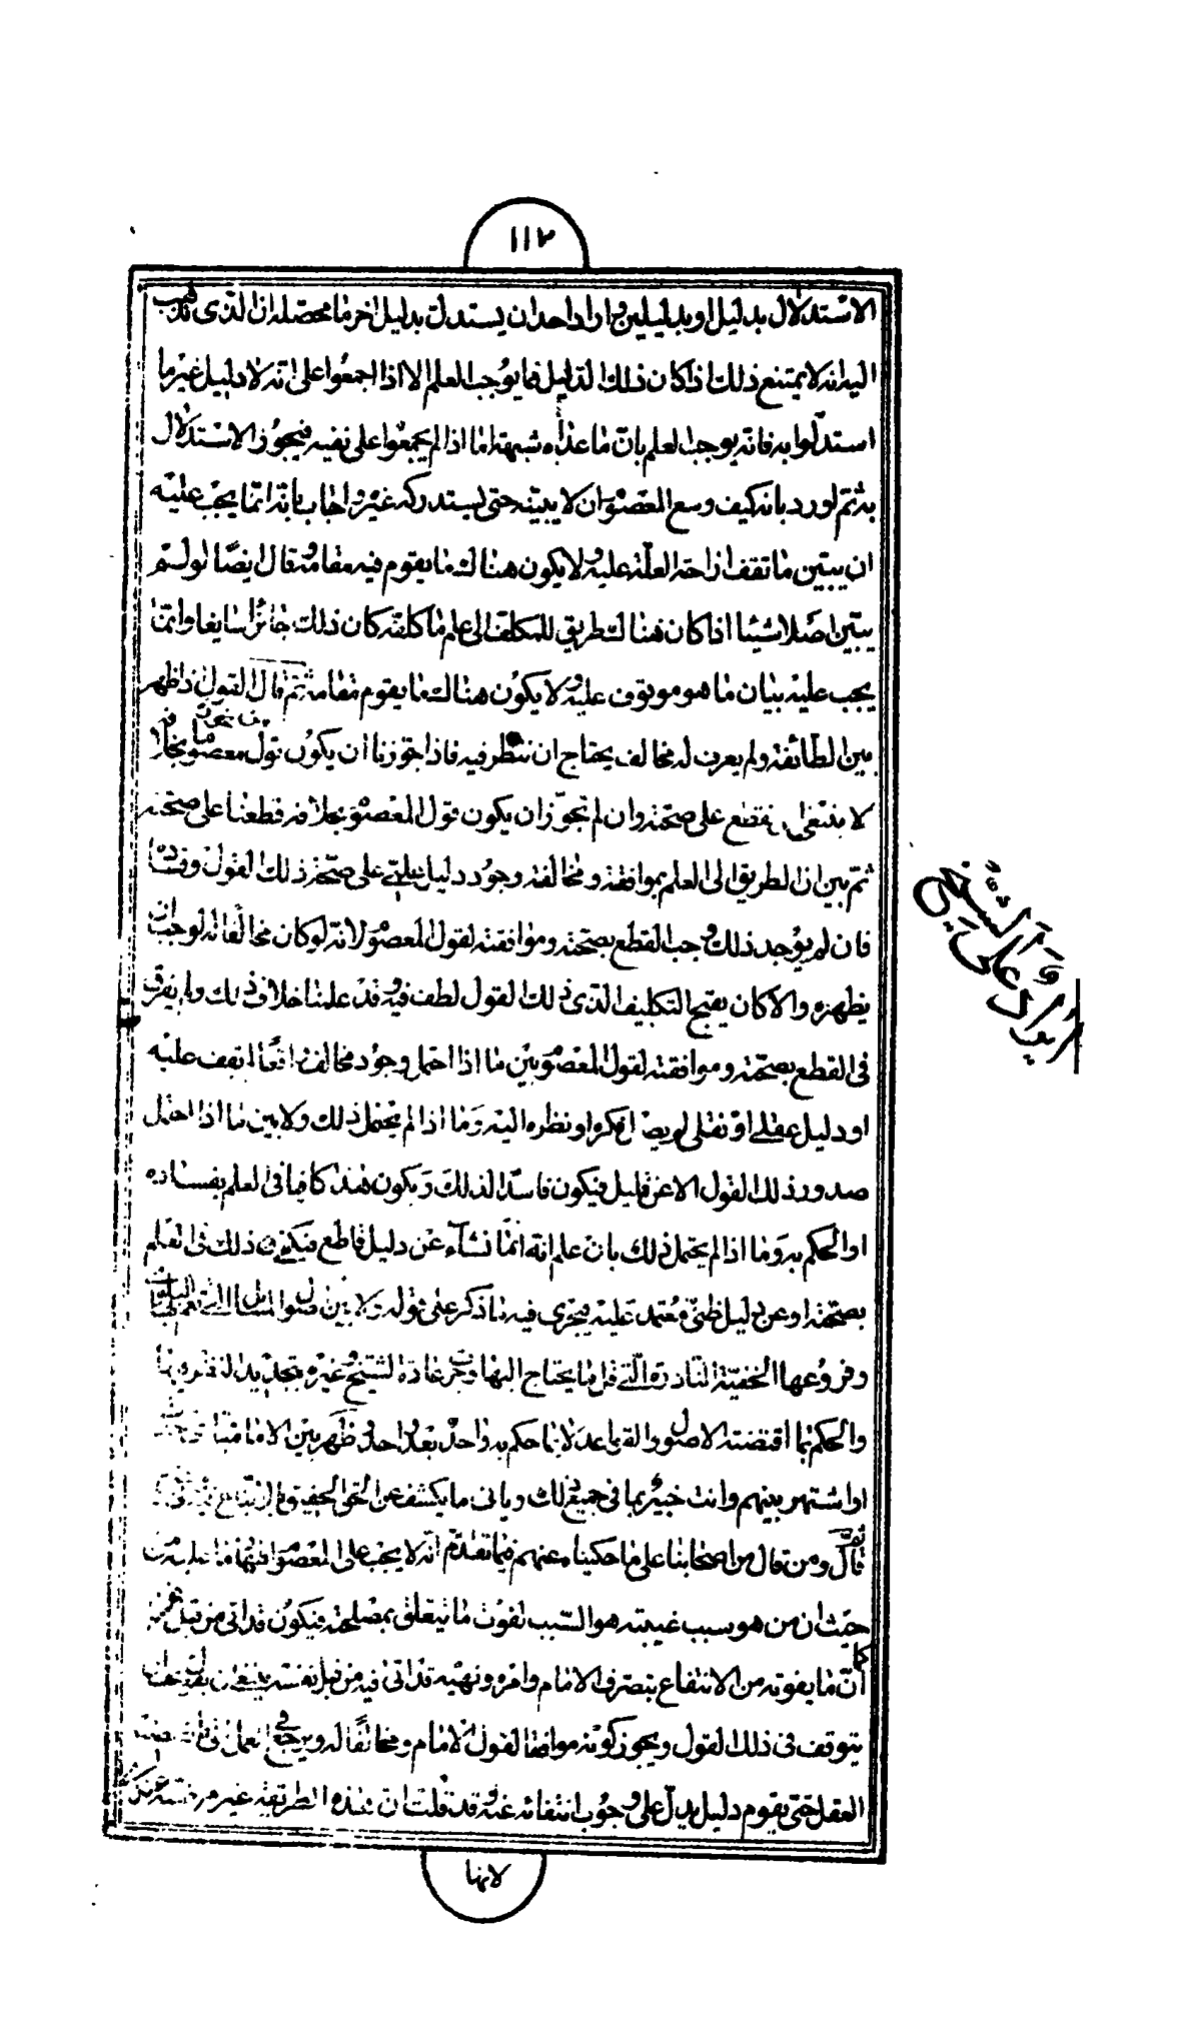 ١١٢
الاستدلال بدليل او بدليلين واراد احد ان يستدل بدليل اخر ما محصله ان الذى نذهب
اليه انه لا يمتنع ذلك اذا كان ذلك الدليل مما يوجب العلم الا اذا اجمعوا على انه لا دليل غير ما
استدلوا به فانه يوجب العلم بان ما عداه شبهة اما اذا لم يجمعوا على نفيه فيجوز الاستدلال
به ثم اورد بانه كيف وسع المعصوم ان لا يبينه حتى يستدركه غيره واجاب بانه انما يجب عليه
ان يبين ما تقف ازاحة العلة عليه ولا يكون هناك ما يقوم فيه مقامه وقال ايضا لو لم
يبين اصلا شيئا اذا كان هناك طريق للمكلف الى علم ما كلفه كان ذلك جائزا سايغا وانما
يجب عليه بيان ما هو موقوف عليه ولا يكون هناك ما يقوم مقامه ثم قال القول اذا ظهر
بين الطائفة ولم يعرف له مخالف يحتاج ان ننظر فيه فاذا جوزنا ان يكون قول المعصوم بخلافه
لا ينبغى ان نقطع على صحته وان لم نجوز ان يكون قول المعصوم بخلافه قطعنا على صحته
ثم بين ان الطريق الى العلم بموافقته ومخالفته وجود دليل علمى على صحة ذلك القول وفساده
فان لم يوجد ذلك وجب القطع بصحته وموافقته لقول المعصوم لانه لو كان مخالفا له لوجب ان
يظهره والا كان يقبح التكليف الذى ذلك القول لطف فيه وقد علمنا خلاف ذلك ولم يفرق
فى القطع بصحته وموافقته لقول المعصوم بين ما اذا احتمل وجود مخالف واقعا لم يقف عليه
او دليل عقلى او نقلى لم يصل فكره او نظره اليه وما اذا لم يحتمل ذلك ولا بين ما اذا احتمل
صدور ذلك القول لا عن دليل فيكون فاسدا لذلك ويكون هذا كافيا فى العلم بفساده
او الحكم به وما اذا لم يحتمل ذلك بان علم انه انما نشأ عن دليل قاطع فيكفى ذلك فى العلم
بصحته او عن دليل ظنى معتمد عليه فيجرى فيه ما ذكر على قوله ولا بين اصول المسائل التى تعم البلوى
وفروعها الخفية النادرة التى قل ما يحتاج اليها وجرت عادة الشيخ وغيره بتجديد النظر فيها
والحكم بما اقتضته الاصول والقواعد لا بما حكم به واحد بعد واحد وظهر بين الامامية
او اشتهر بينهم وانت خبير بما فى جميع ذلك ويأتى ما يكشف عن الحق الحقيق بالاتباع
ثم قال ومن قال من اصحابنا على ما حكيناه عنهم فيما تقدم انه لا يجب على المعصوم اظهار ما عليه من
حيث ان من هو سبب غيبته هو السبب لفوت ما يتعلق بمصلحته فيكون قد اتى من قبل نفسه
كما ان ما يفوته من الانتفاع بتصرف الامام وامره ونهيه قد اتى فيه من قبل نفسه ينبغى ان يقول هنا
يتوقف فى ذلك القول ويجوز كونه موافقا لقول الامام ومخالفا له ويرجع فى العمل
العقل حتى يقوم دليل يدل على وجوب انتقاله عنه وقد قلت ان هذه الطريقة غير مرضية عندى
لانها
ايراد على الشيخ